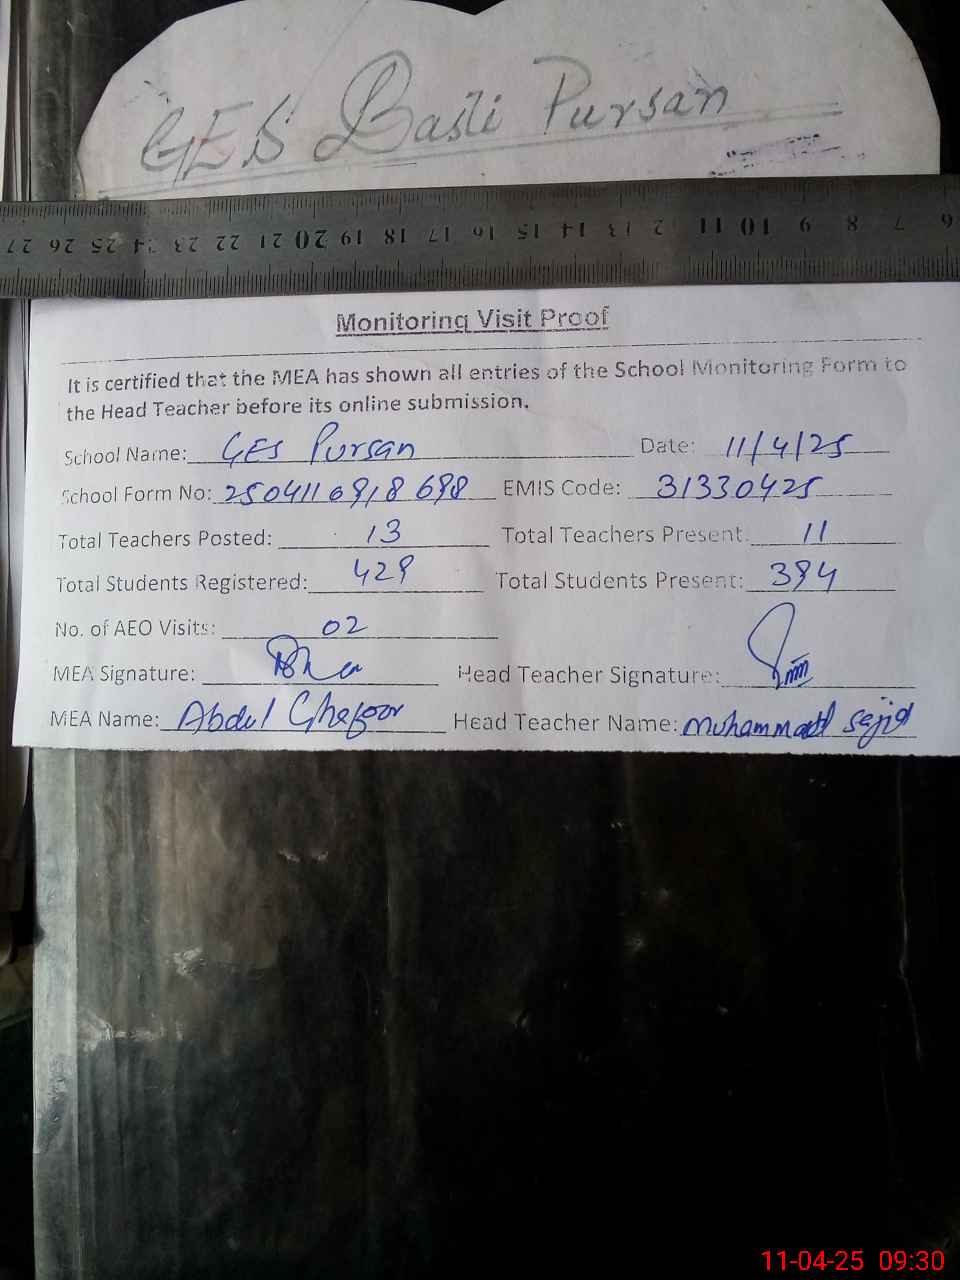 GES Basti Pursan
27 26 25 24 23 22 21 20 19 18 17 16 15 14 13 12 11 10 9 8 7 6
Monitoring Visit Proof
It is certified that the MEA has shown all entries of the School Monitoring Form to
the Head Teacher before its online submission.
School Name: GES Pursan Date: 11/4/25
School Form No: EMIS Code: 31330425
Total Teachers Posted: 13 Total Teachers Present: 11
Total Students Registered: 429 Total Students Present: 394
No. of AEO Visits: 02
MEA Signature: Head Teacher Signature:
MEA Name: Abdul Ghafoor Head Teacher Name: Muhammad Sajid
11-04-25 09:30